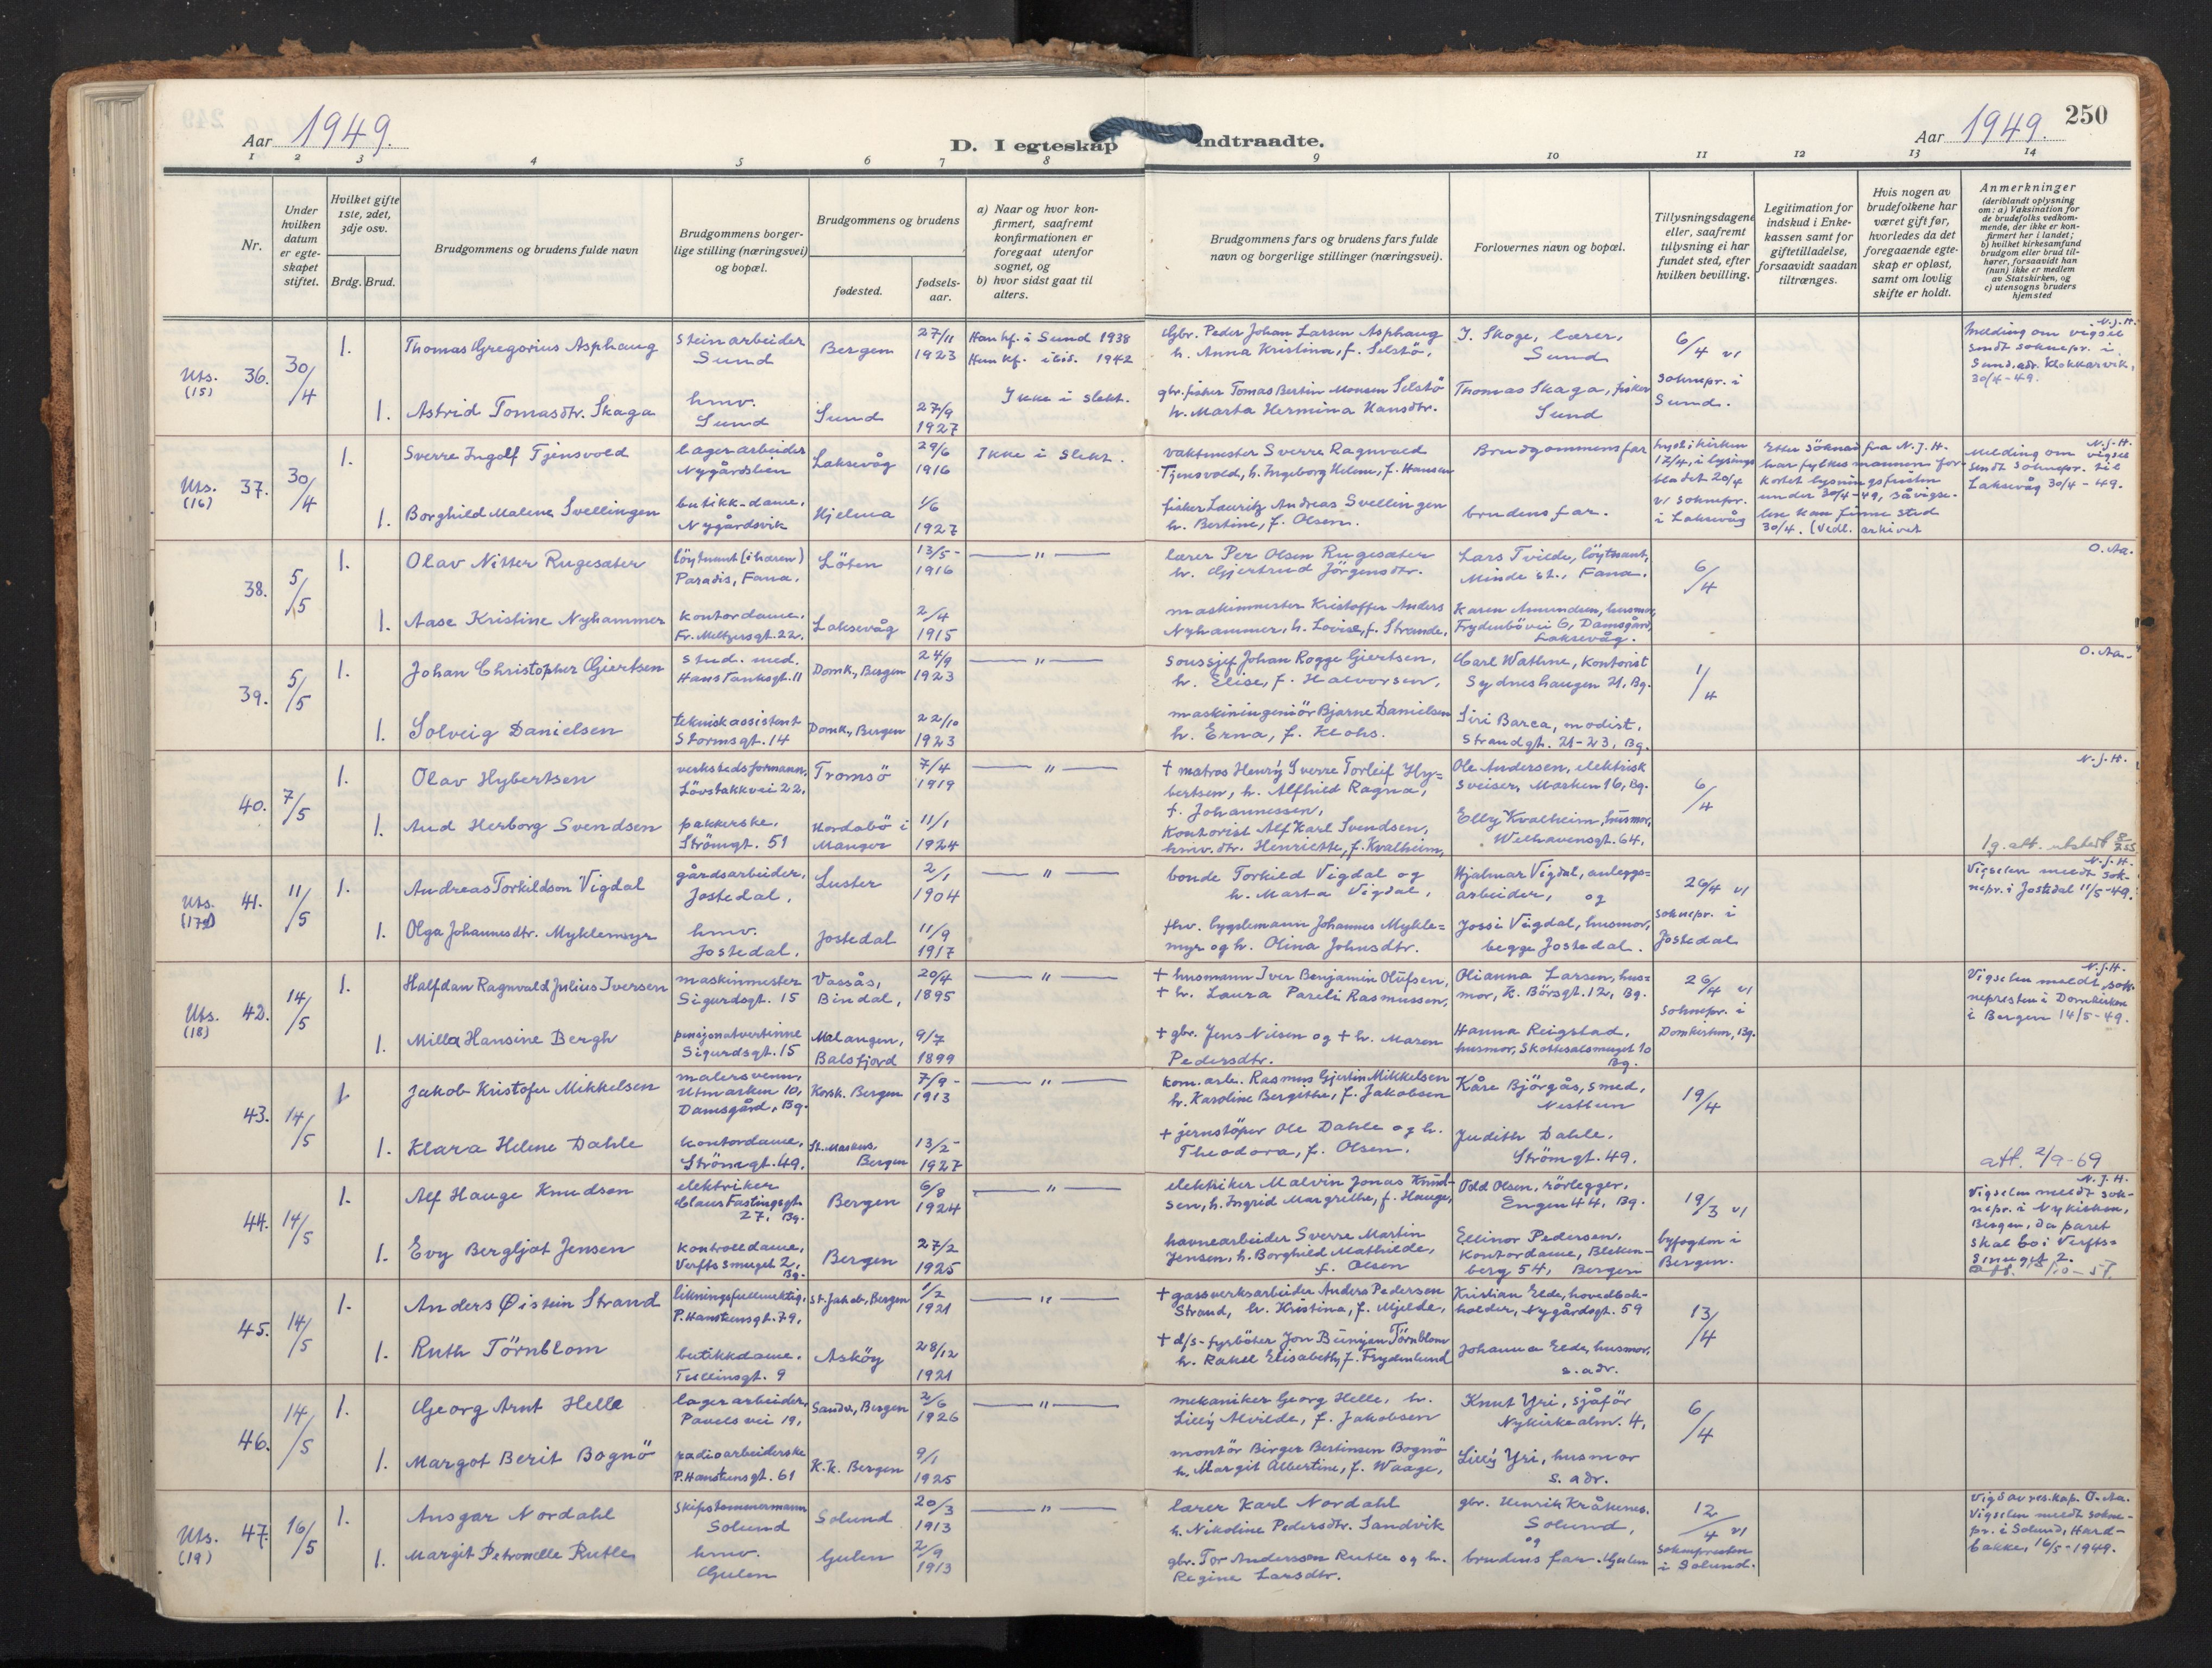 250
Aar 1949.
D. I egteskap indtraadte.
Aar 1949.
1 2 3 4 5 6 7 8 9 10 11 12 13 14
Nr.
Under hvilken datum er egteskapet stiftet.
Hvilket gifte 1ste, 2det, 3dje osv.
Brdg. Brud.
Brudgommens og brudens fulde navn
Brudgommens borgerlige stilling (næringsvei) og bopæl.
Brudgommens og brudens
fødested.
fødselsaar.
a) Naar og hvor konfirmert, saafremt konfirmationen er foregaat utenfor sognet, og
b) hvor sidst gaat til alters.
Brudgommens fars og brudens fars fulde navn og borgerlige stillinger (næringsvei).
Forlovernes navn og bopæl.
Tillysningsdagene eller, saafremt tillysning ei har fundet sted, efter hvilken bevilling.
Legitimation for indskud i Enkekassen samt for giftetilladelse, forsaavidt saadan tiltrænges.
Hvis nogen av brudefolkene har været gift før, hvorledes da det foregaaende egteskap er opløst, samt om lovlig skifte er holdt.
Anmerkninger
(deriblandt oplysning om: a) Vaksination for de brudefolks vedkommende, der ikke er konfirmert her i landet;
b) hvilket kirkesamfund brudgom eller brud tilhører, forsaavidt han (hun) ikke er medlem av Statskirken, og
c) utensogns bruders hjemsted
Uts. (15) 36. 30/4
1. Thomas Gregorius Asphaug
steinarbeider Sund
Bergen
27/11 1923
Han kf. i Sund 1938
Hun kf. ibid. 1942
Ikke i slekt.
Gbr. Peder Johan Larsen Asphaug
h. Anna Kristina, f. Selstø,
J. Skoge, lærer, Sund
6/4 v/ soknepr. i Sund.
N.J.H.
Melding om vigsel sendt soknepr. i Sund, adr. Klokkarvik, 30/4-49.
1. Astrid Tomasdtr. Skaga
hmv. Sund
Sund
27/9 1927
gbr. fisker Tomas Bertin Monsen Selstö
h. Marta Hermina Hansdtr.
Thomas Skaga, fisker Sund
Uts. (16) 37. 30/4
1. Sverre Ingolf Tjensvold
lagerarbeider Nygårdslien
Laksevåg
29/6 1916
Ikke i slekt.
vaktmester Sverre Ragnvald
Tjensvold, h. Ingeborg Helene, f. Hansen
Brudgommens far
lyst i kirken 17/4, i lysingsbladet 20/4 v/ soknepr. i Laksevåg
Etter söknad fra N.J.H. har fylkesmannen forkortet lysningsfristen under 30/4-49, så vigselen kan finne sted 30/4. (Vedl. arkivet
N.J.H.
Melding om vigsel sendt soknepr. til Laksevåg 30/4-49.
1. Borghild Malene Svellingen
butikk-dame, Nygårdsvik
Hjelma
1/6 1927
fisker Lauritz Andreas Svellingen
h. Bertine, f. Olsen.
brudens far.
38. 5/5
1. Olav Nitter Rugesæter
löytnant (i hæren) Paradis, Fana.
Löten
13/5- 1916
— " —
lærer Per Olsen Rugesæter
h. Gjertrud Jörgensdtr.
Lars Tvilde, löytnant, Minde st., Fana.
6/4
O.Aa.
1. Aase Kristine Nyhammer
kontordame, Fr. Meltzersgt. 22.
Laksevåg
2/4 1915
maskinmester Kristoffer Anders
Nyhammer, h. Lovise, f. Strande,
Karen Amundsen, husmor, Frydenbövei 6, Damsgård, Laksevåg.
39. 5/5
1. Johan Christopher Gjertsen
stud. med. Hans Tanksgt. 11
Domk., Bergen
24/9 1923
— " —
soussjef Johan Rogge Gjertsen,
h. Elise, f. Halvorsen,
Carl Wathne, kontorist Sydneshaugen 21, Bg.
1/4
O.Aa.
1. Solveig Danielsen
teknisk assistent Stormsgt. 14
Domk., Bergen
22/10 1923
maskiningeniör Bjarne Danielsen
h. Erna, f. Klohs.
Siri Barca, modist, Strandgt. 21-23, Bg.
40. 7/5
1. Olav Hybertsen
verkstedsformann, Lövstakkvei 22,
Tromsö
7/4 1919
— " —
+ matros Henrÿ Sverre Torleif Hybertsen, h. Alfhild Ragna, f. Johannessen,
Ole Andersen, elektrisk sveiser, Marken 16, Bg.
6/4
N.J.H.
1. Aud Herborg Svendsen
pakkerske, Strömgt. 51
Hordabö i Manger
11/1 1924
Kontorist Alf Karl Svendsen,
hmv. dtr. Henriette, f. Kvalheim,
Elly Kvalheim, husmor, Welhavensgt. 64,
lg. att. utstedt
Uts. (17) 41. 11/5
1. Andreas Torkildson Vigdal
gårdsarbeider, Jostedal,
Luster
2/1 1904
— " —
bonde Torkild Vigdal og
h. Marta Vigdal,
Hjalmar Vigdal, anleggsarbeider, og
26/4 v/ soknepr. i Jostedal
N.J.H.
Vigselen meldt soknepr. i Jostedal 11/5-49.
1. Olga Johannesdtr. Myklemyr
hmv. Jostedal,
Jostedal
11/9 1917
fhv. bygslemann Johannes Myklemyr og h. Olina Johnsdtr.
Jossi Vigdal, husmor, begge Jostedal.
Uts. (18) 42. 14/5
1. Halfdan Ragnvald Julius Iversen
maskinmester Sigurdsgt. 15
Vassås, Bindal,
20/4 1895
— " —
+ husmann Iver Benjamin Olufsen,
+ h. Laura Pareli Rasmussen,
Olianna Larsen, husmor, K. Börsgt. 12, Bg.
26/4 v/ soknepr. i Domkirken, Bg.
N.J.H.
Vigselen meldt soknepresten i Domkirken i Bergen 14/5-49.
1. Milla Hansine Bergh
pensjonatvertinne Sigurdsgt. 15
Malangen, Balsfjord
9/7 1899
+ gbr. Jens Nilsen og + h. Maren
Pedersdtr.
Hanna Reigstad, husmor, Skottesalsmuget 10 Bg.
43. 14/5
1. Jakob Kristofer Mikkelsen
malersvenn, Utmarken 10, Damsgård, Bg.
Korsk. Bergen
7/9- 1913
— " —
kom. arb. Rasmus Gjertin Mikkelsen
h. Karoline Bergithe, f. Jakobsen
Kåre Björgås, smed, Nesttun
19/4
1. Klara Helene Dahle
kontordame, Strömgt. 49.
St. Markus, Bergen
13/2- 1927
+ jernstöper Ole Dahle og h.
Theodora, f. Olsen.
Judith Dahle, Strömgt. 49.
att. 2/9-69
44. 14/5
1. Alf Hauge Knudsen
elektriker Claus Fastingsgt. 27, Bg.
Bergen
6/8 1924
— " —
elektriker Malvin Jonas Knudsen, h. Ingrid Margrethe, f. Hauge,
Odd Olsen, rörlegger, Engen 44, Bg.
19/3 v/ byfogden i Bergen.
N.J.H.
Vigselen meldt soknepr. i Nykirken, Bergen, da paret skal bo i Verftssmuget 2.
1. Evy Bergljot Jensen
kontrolldame, Verftssmuget 2, Bg.
Bergen
27/2 1925
havnearbeider Sverre Martin
Jensen, h. Borghild Mathilde,
f. Olsen
Ellinor Pedersen, Kontordame, Blekenberg 54, Bergen
45. 14/5
1. Anders Øistein Strand
likningsfullmektig, P. Hanstensgt. 79,
St. Jakob, Bergen
1/2 1921
— " —
+ gassverksarbeider Anders Pedersen
Strand, h. Kristina, f. Mjelde,
Kristian Elde, hovedbokholder, Nygårdsgt. 59
13/4
1. Ruth Törnblom
butikkdame, Tullinsgt. 9
Asköy
28/12 1921
+ d/s-fyrböter Jon Bunjen Törnblom
h. Rakel Elisabeth, f. Frydenlund
Johanna Elde, husmor, s. adr.
46. 14/5
1. Georg Arnt Helle
lagerarbeider, Pavels vei 19,
Sandv., Bergen
2/6 1926
— " —
mekaniker Georg Helle, h.
Lillÿ Alvilde, f. Jakobsen
Knut Yri, sjåför Nykirkealm. 4,
6/4
1. Margot Berit Bognö
radioarbeiderske P. Hanstensgt. 61
K.k. Bergen
9/1 1925
montör Birger Bertinsen Bognö
h. Margit Albertine, f. Waage,
Lillÿ Yri, husmor s. adr.
Uts. (19) 47. 16/5
1. Ansgar Nordahl
skipstømmermann Solund
Solund
20/3 1913
— " —
lærer Karl Nordahl
h. Nikoline Pedersdtr. Sandvik
gbr. Henrik Kråkenes, Solund, og
12/4 v/ soknepresten i Solund.
Vigd av res.kap. O.Aa.
Vigselen meldt soknepr. i Solund, Hardbakke, 16/5-1949.
1. Margit Petronelle Rutle
hmv. Gulen
Gulen
2/9 1913
gbr. Tor Anderssen Rutle og h.
Regine Larsdtr.
brudens far. Gulen